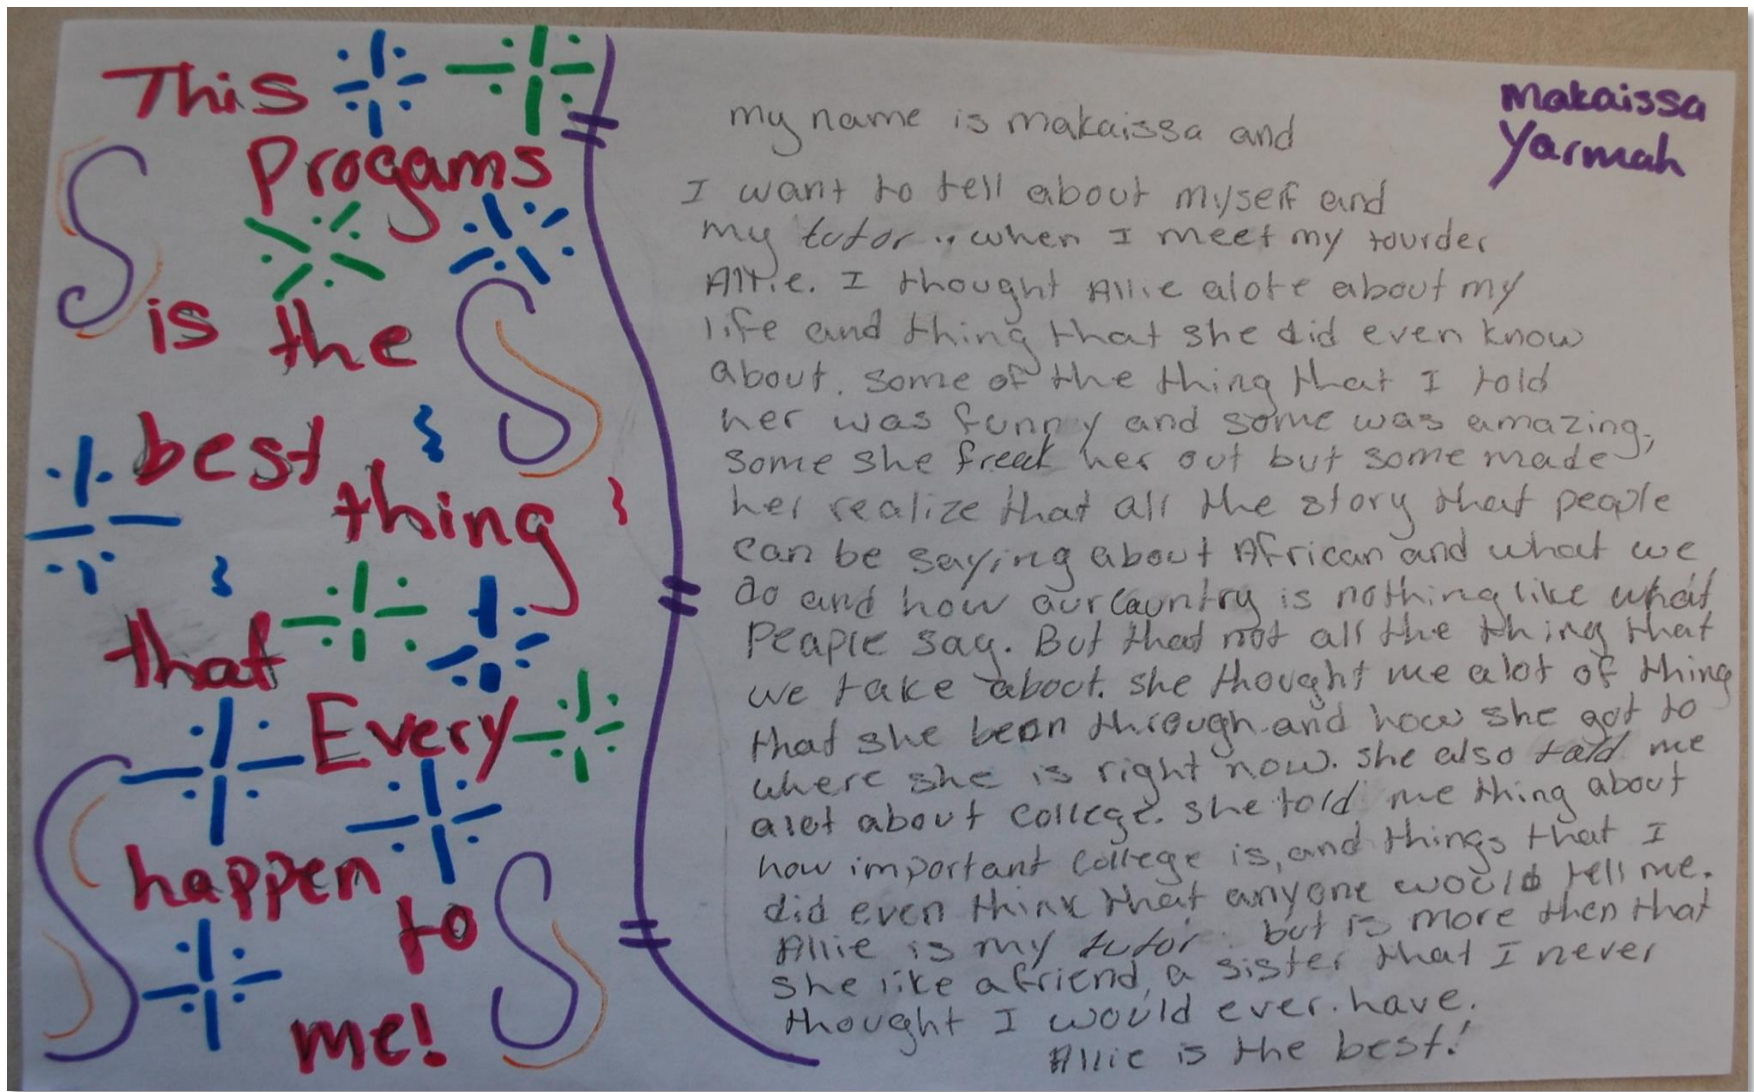 This
Progams
is the
best
thing
that
Every
happen
to
me!
makaissa
Yarmah
my name is makaissa and
I want to tell about myself and
my tutor .. when I meet my tourder
Allie. I thought Allie alote about my
life and thing that she did even know
about. some of the thing that I told
her was funny and some was amazing,
some she freak her out but some made
her realize that all the story that people
can be saying about African and what we
do and how our Country is nothing like what
Peaple say. But that not all the thing that
we take about. she thought me alot of thing
that she been through and how she got to
where she is right now. she also told me
alot about College. she told me thing about
how important College is, and things that I
did even think that anyone would tell me.
Allie is my tutor but is more then that
she like a friend, a sister that I never
thought I would ever. have.
Allie is the best!